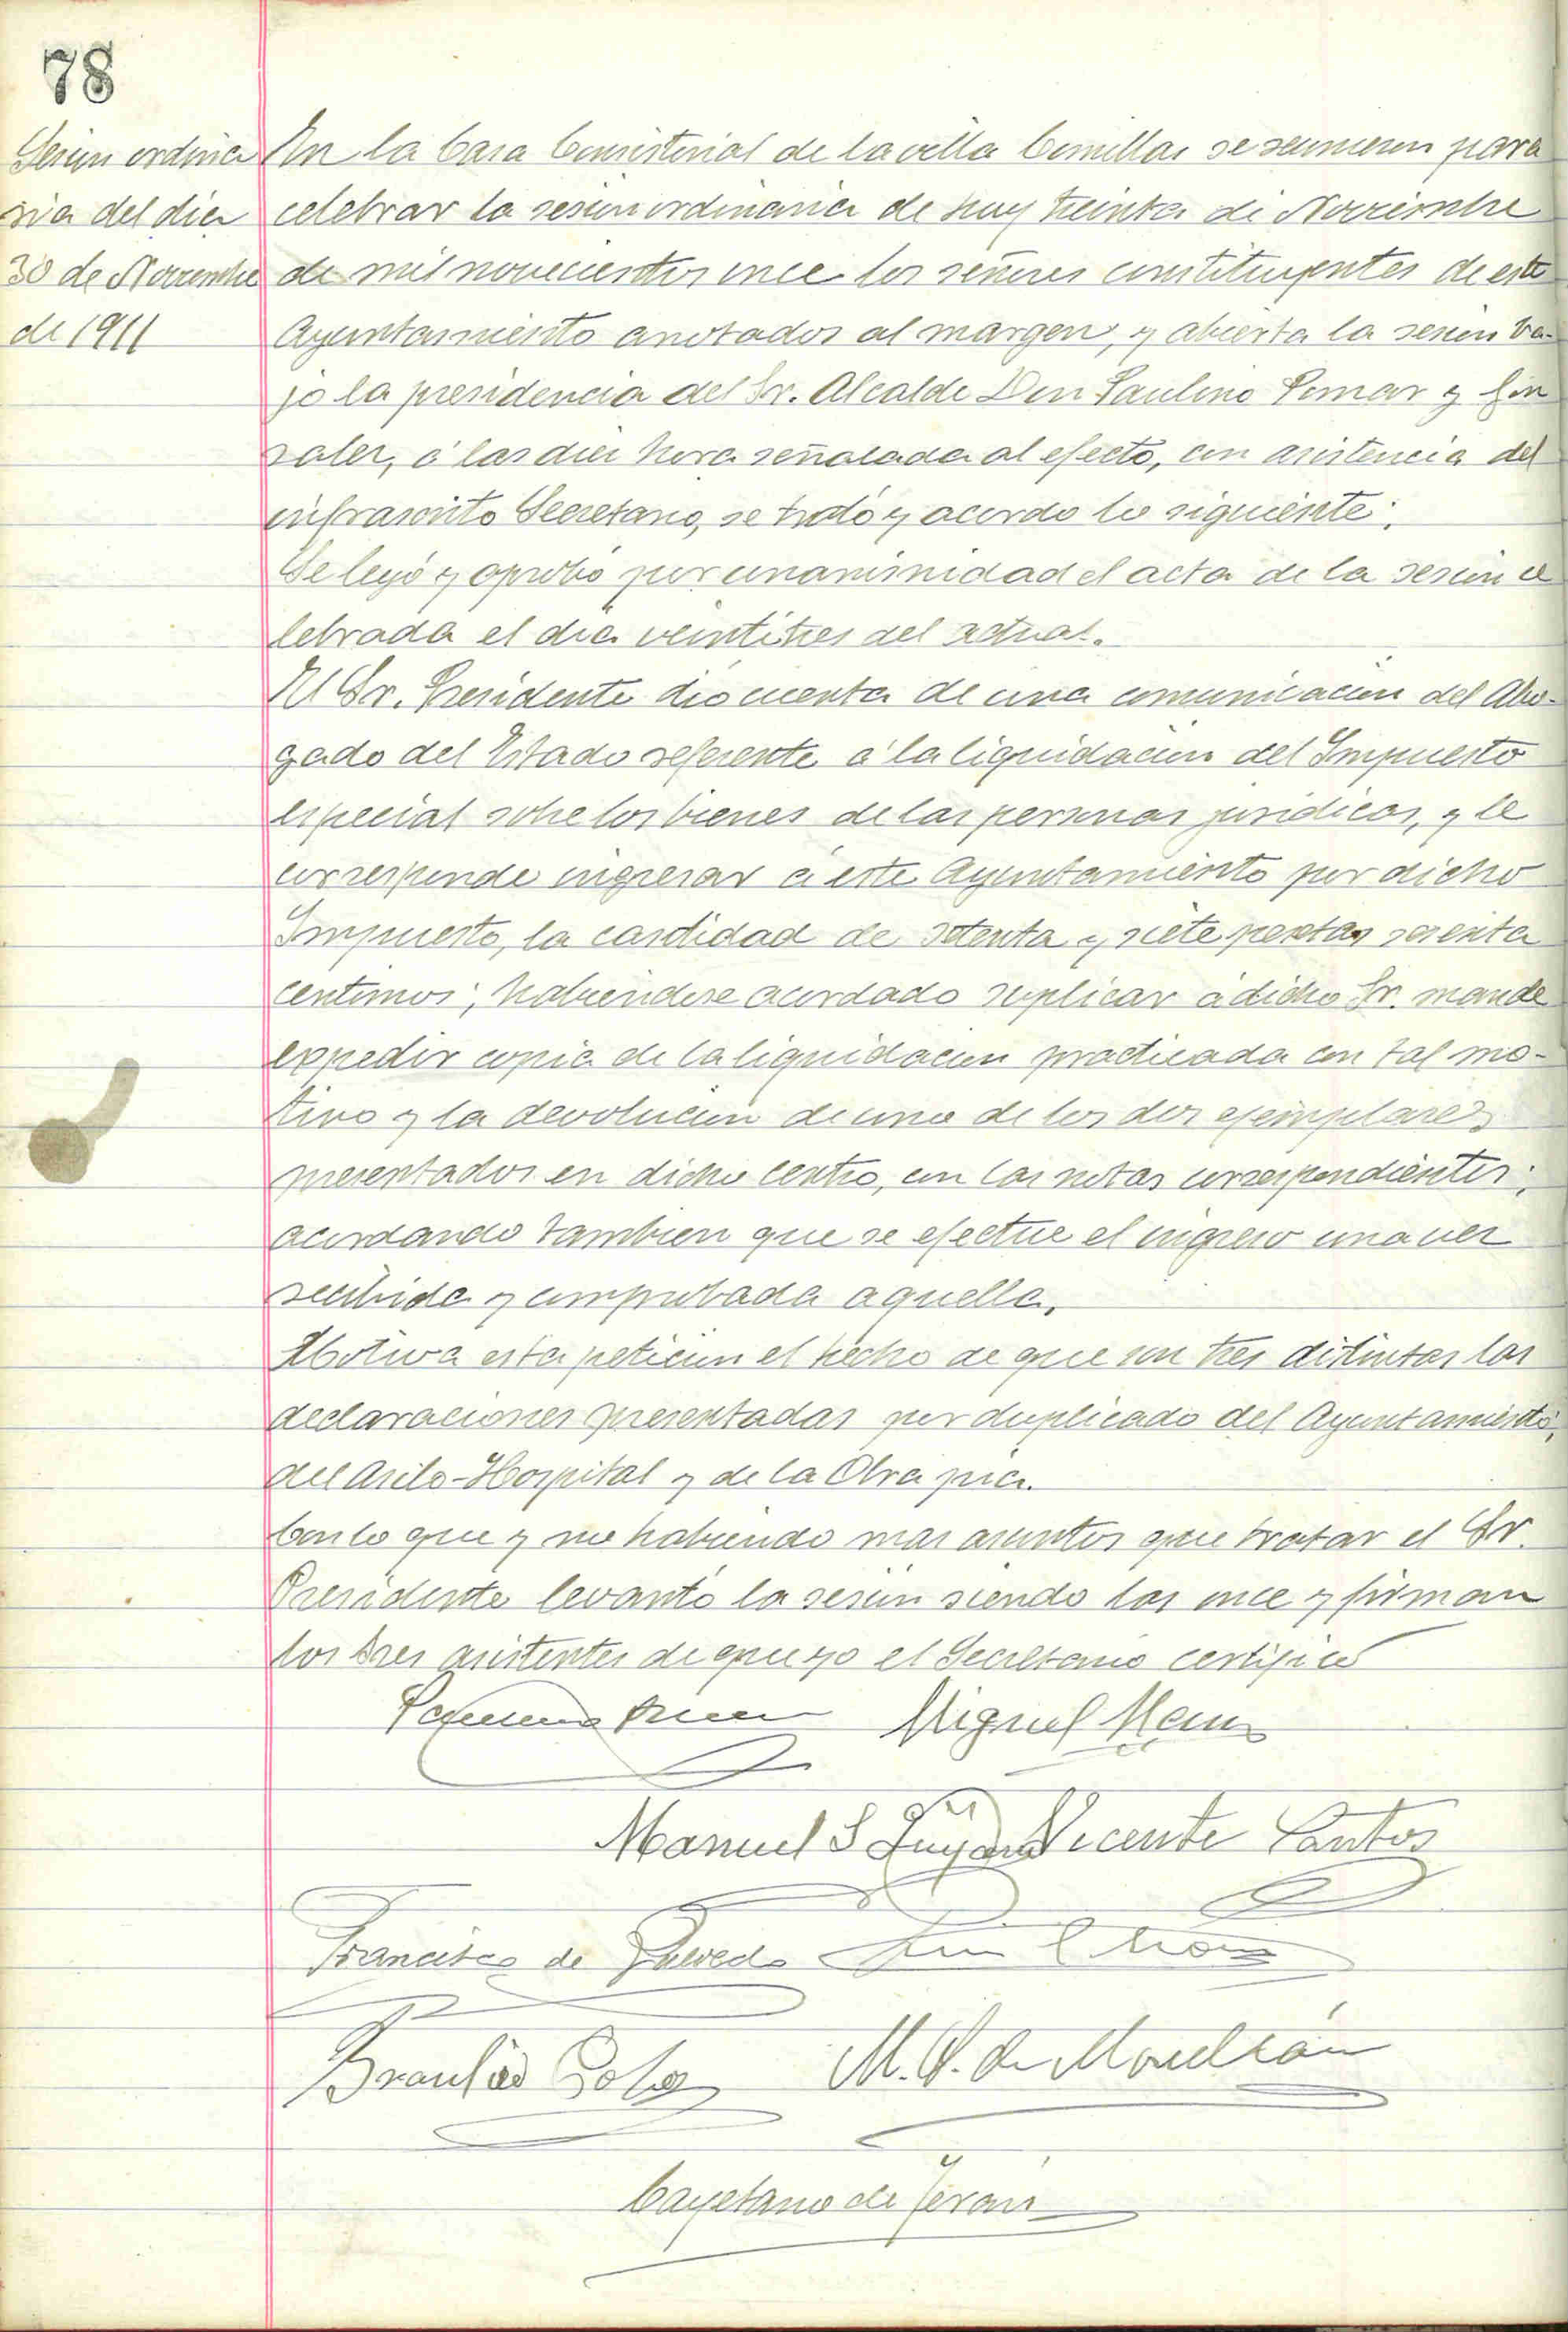 78
Sesion ordina
ria del dia
30 de Noviembre
de 1911
En la Casa Consistorial de la villa Comillas se reunieron para
celebrar la sesion ordinaria de hoy treinta de Noviembre
de mil novecientos once los señores constituyentes de este
Ayuntamiento anotados al margen, y abierta la sesion ba-
jo la presidencia del Sr. Alcalde Don Paulino Pomar y Gon
zalez, á las diez hora señalada al efecto, con asistencia del
infrascrito Secretario, se trató y acordo lo siguiente:
Se leyó y aprobó por unanimidad el acta de la sesion ce
lebrada el dia veintitres del actual.
El Sr. Presidente dió cuenta de una comunicacion del Abo-
gado del Estado referente á la liquidacion del Impuesto
especial sobre los bienes de las personas juridicas, y le
corresponde ingresar á este Ayuntamiento por dicho
Impuesto, la cantidad de setenta y siete pesetas sesenta
centimos; habiendose acordado suplicar á dicho Sr. mande
expedir copia de la liquidacion practicada con tal mo-
tivo y la devolucion de uno de los dos ejemplares
presentados en dicho centro, con las notas correspondientes;
acordando tambien que se efectue el ingreso una vez
recibida y comprobada aquella.
Motiva esta peticion el hecho de que son tres distintas las
declaraciones presentadas por duplicado del Ayuntamiento,
del Asilo-Hospital y de la Obra pia.
Con lo que y no habiendo mas asuntos que tratar el Sr.
Presidente levantó la sesion siendo las once y firman
los Sres asistentes de que yo el Secretario certifico
Miguel
Manuel S Vicente Santos
Francisco de
Braulio M. S. de
Cayetano de Terán